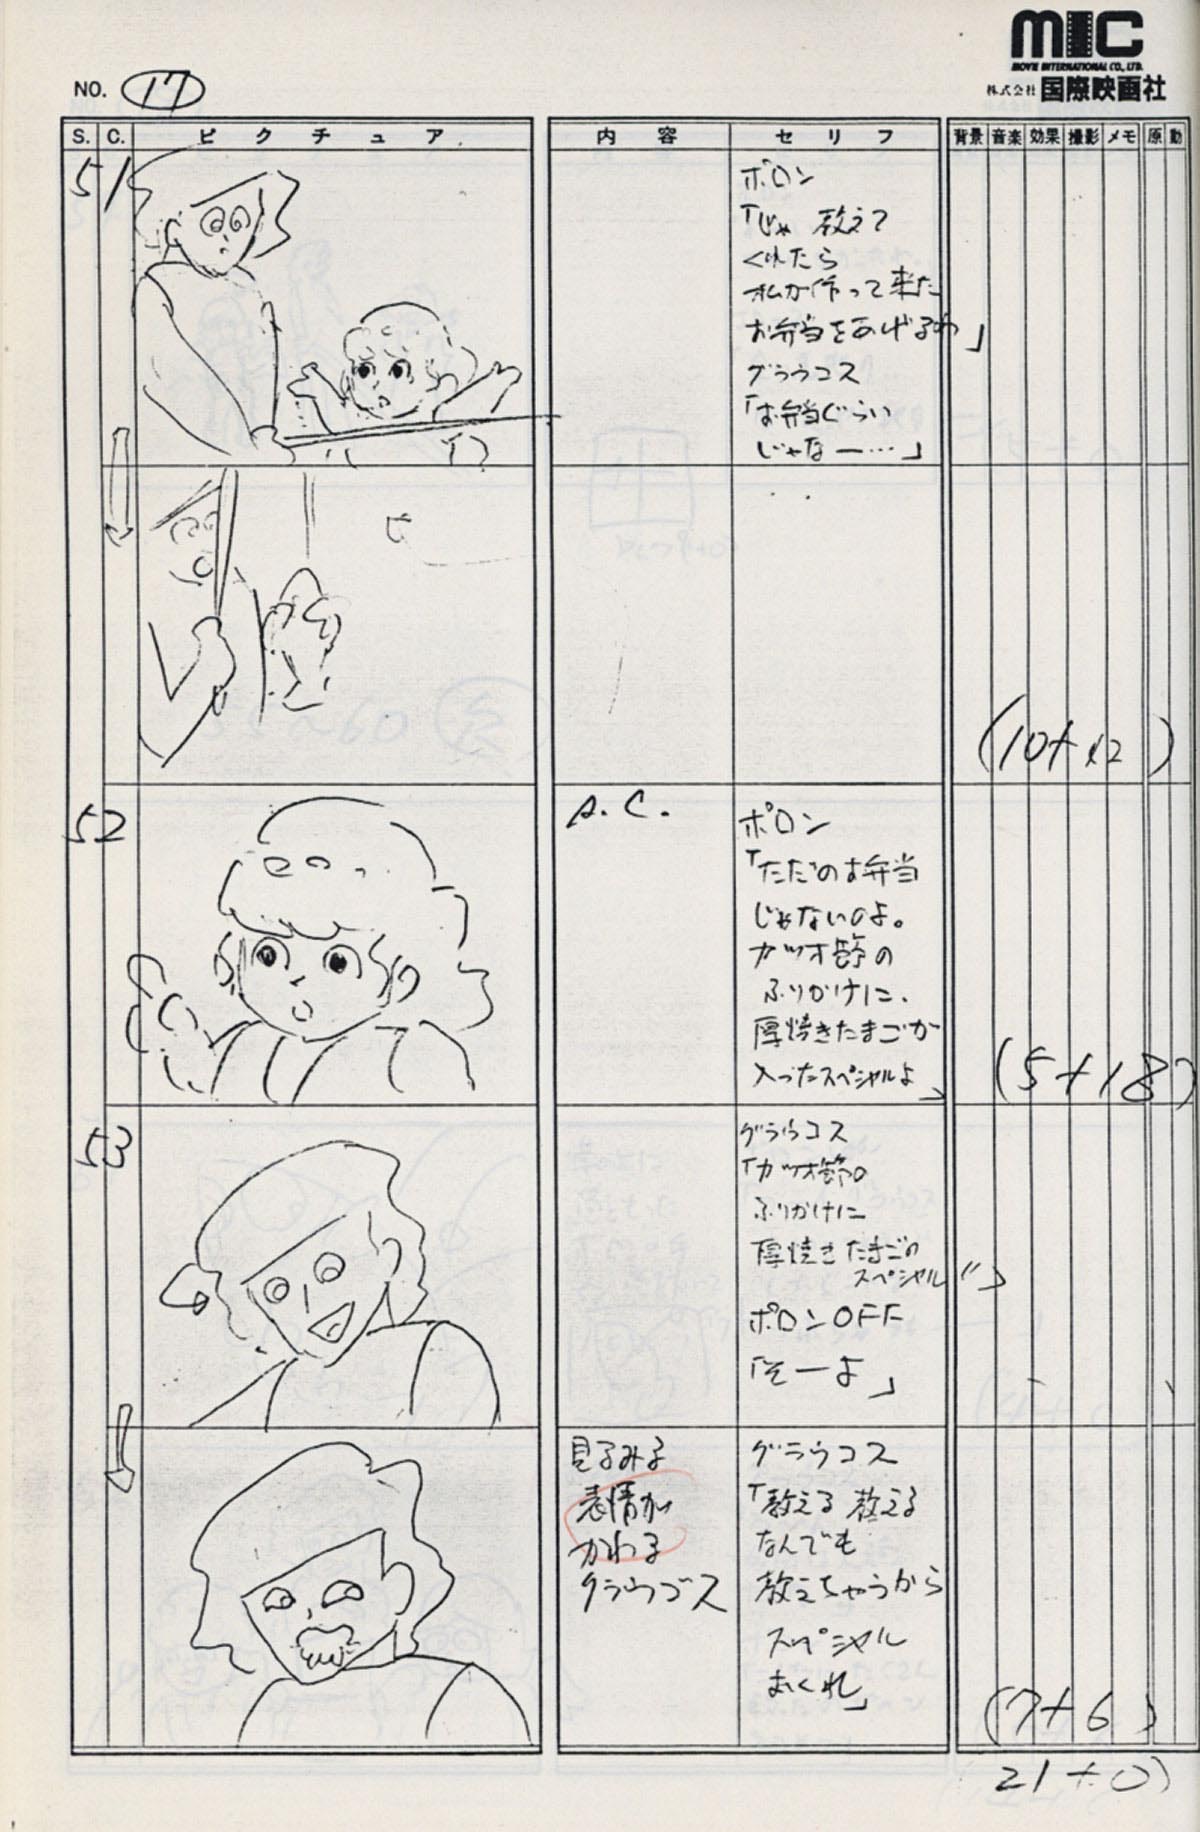 MIC
MOVIE INTERNATIONAL CO., LTD.
株式会社 国際映画社
NO. 17
S. C. ピクチュア 内容 セリフ 背景 音楽 効果 撮影 メモ 原 動
51
ポロン
「じゃ 教えて
くれたら
私が作って来た
お弁当をあげるわ」
グラウコス
「お弁当ぐらい
じゃなー…」
(10+12)
52
A.C.
ポロン
「ただのお弁当
じゃないのよ。
カツオ節の
ふりかけに、
厚焼きたまごが
入ったスペシャルよ」
(5+18)
53
グラウコス
「カツオ節の
ふりかけに
厚焼きたまごの
スペシャル〃」
ポロンOFF
「そーよ」
見るみる
表情が
かわる
グラウコス
グラウコス
「教える 教える
なんでも
教えちゃうから
スペシャル
おくれ」
(7+6)
21+0)